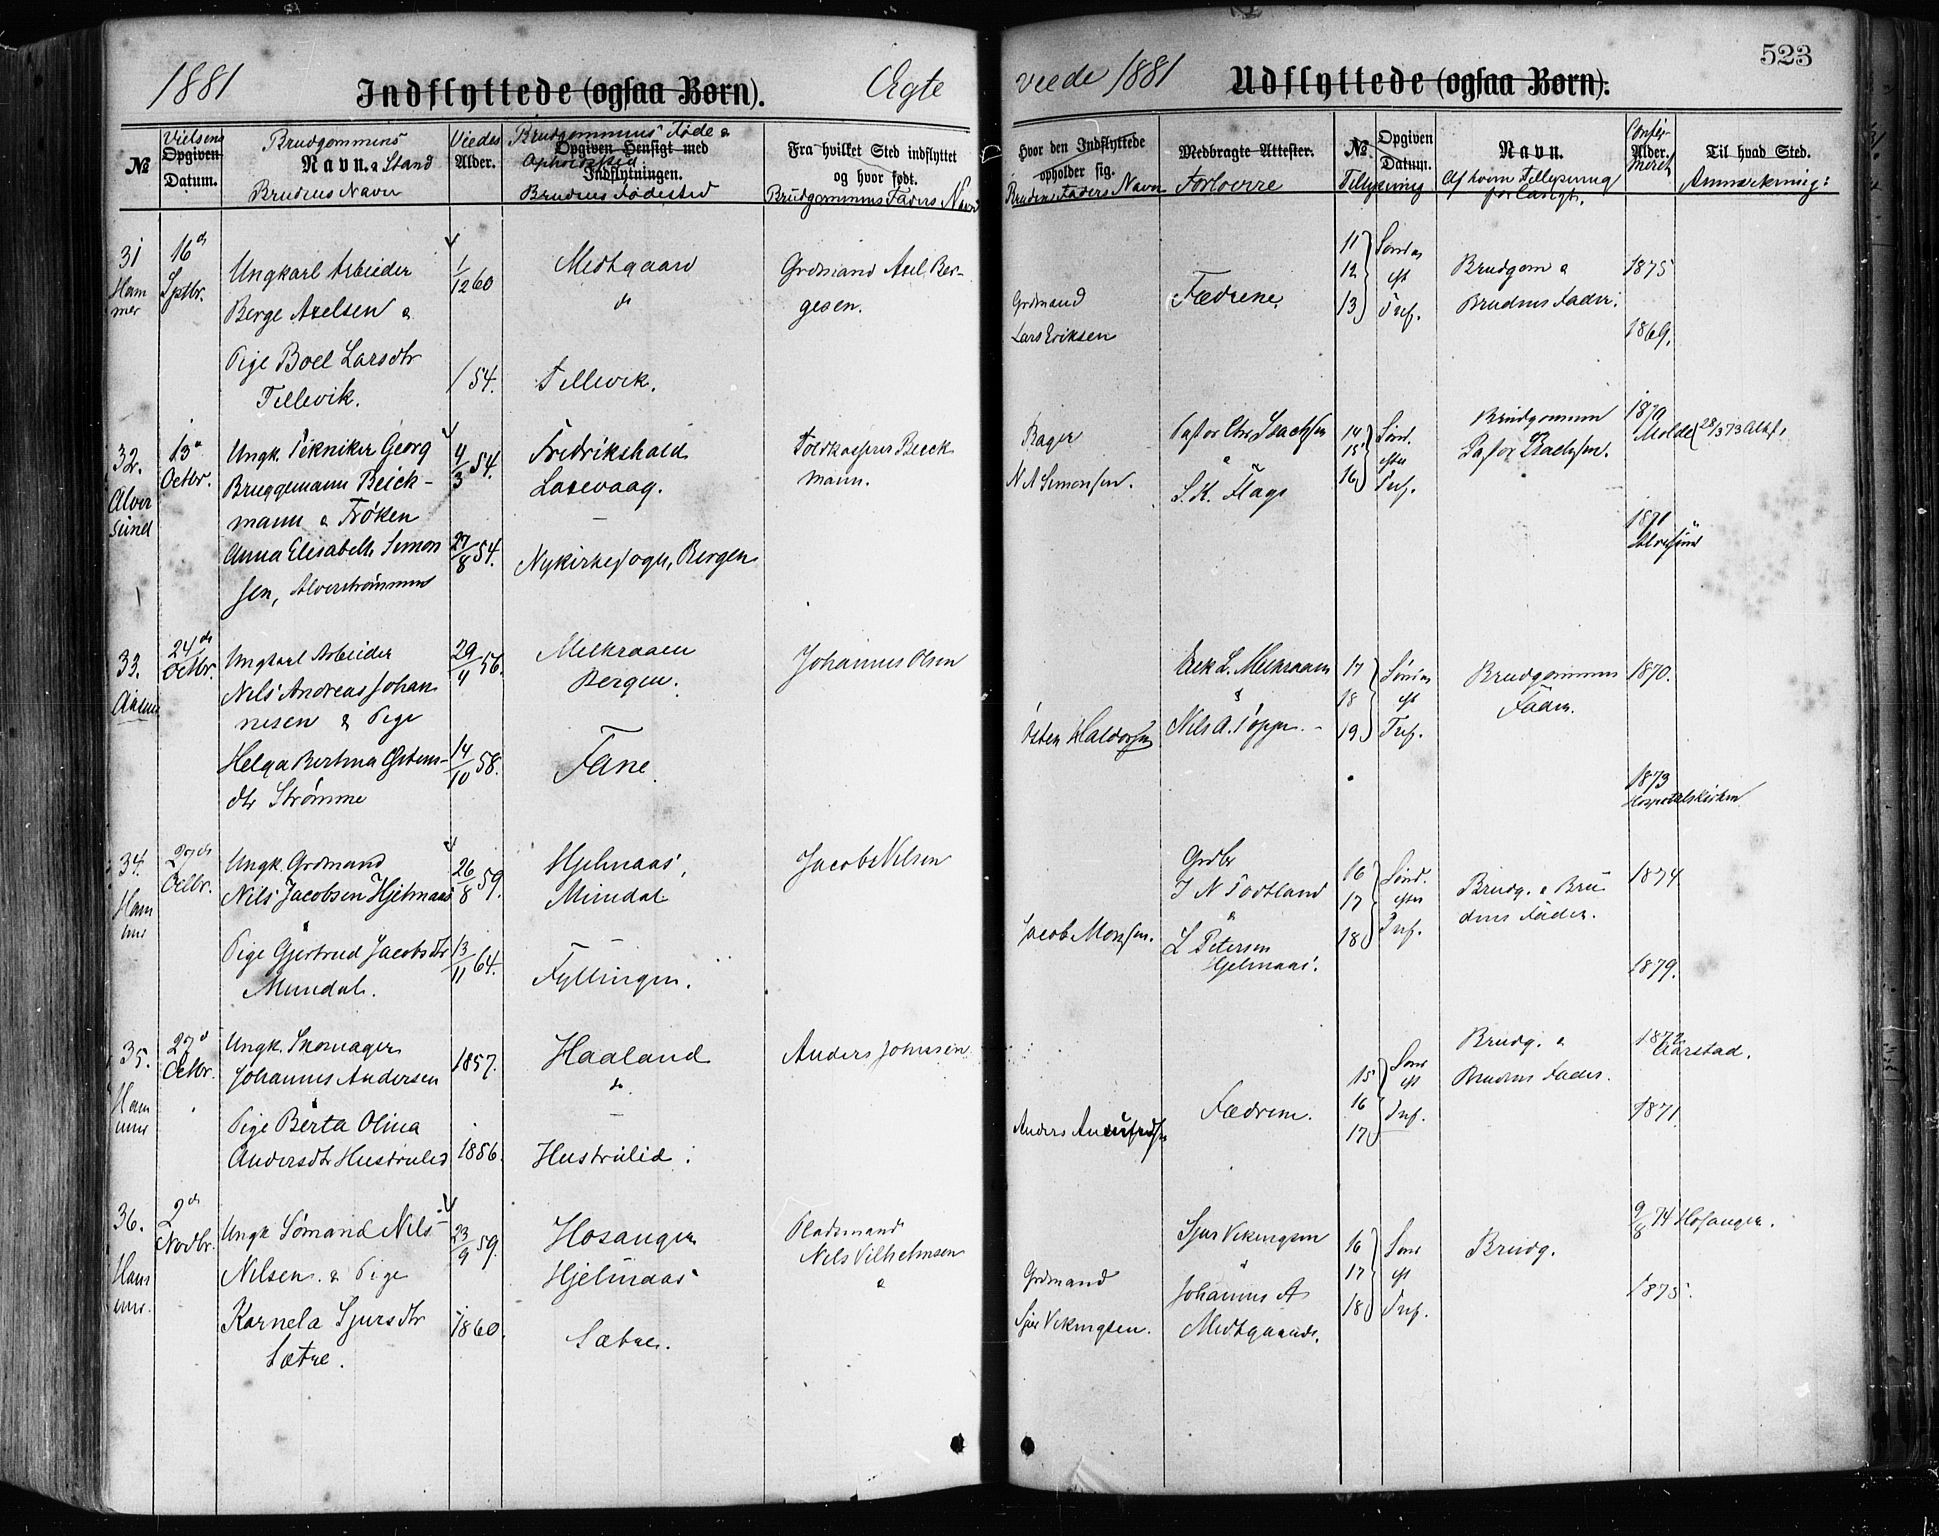 1881 Indflyttede (ogsaa Børn). Ægte
viede 1881 Udflyttede (ogsaa Børn).
523
№
Vielsens
Opgiven
Datum.
Brudgommens
Navn. & Stand
Brudens Navn
Viedes
Alder.
Brudgommens Føde &
Opgiven Hensigt med
Opholdssted
Indflytningen.
Brudens Fødested
Fra hvilket Sted indflyttet
og hvor født.
Brudgommens Faders Navn
Hvor den Indflyttede
opholder sig.
Brudens Faders Navn
Medbragte Attester.
Forlovere
№
Opgiven
Datum.
Tillysning
Navn.
Af hvem Tillysning
forlangt.
Confir-
Alder.
meret
Til hvad Sted.
Anmærkning:
31
Ham
mer
16de
Sptbr.
Ungkarl Arbeider
Berge Axelsen &
Pige Boel Larsdtr
Tellevik.
1/12 60
/ 54.
Medtgaard
do
Tellevik.
Grdmand Axel Ber-
gesen.
Grdmand
Lars Eriksen
Fædrene.
11
12
13
Sønd
eft
Tref.
Brudgom &
Brudens Fader.
1875
1869.
32.
Alver
sund
13de
Octbr.
Ungk. Tekniker Georg
Bruggemann Beick-
mann & Frøken
Anna Elisabeth Simon
sen, Alverstrømmen
4/3 54.
27/8 54.
Fredrikshald
Laxevaag.
Nykirkesogn, Bergen
Toldkasserer Beick
mann.
Bager
N A Simonsen.
Pastor Chr Isachsen
&
S. K. Flage
14
15
16
Sønd.
efter
Tref.
Brudgommen
Pastor Isachsen.
1870
Molde
1871
Alversund
33.
24de
Octbr.
Ungkarl Arbeider
Nils Andreas Johan
nesen & Pige
Helga Bertina Østens-
dtr Strømme
29/11 56.
14/10 58.
Melkraaen
Bergen.
Fane.
Johannes Olsen
Østen Haldorsen
Erik L. Melkraaen
&
Nils A. Toppe.
17
18
19
Sønd
eft
Tref.
Brudgommens
Fader.
1870.
1873
Hospitalskirken
34.
Ham
mer
27de
Octbr.
Ungk. Grdmand
Nils Jacobsen Hjelmaas
&
Pige Gjertrud Jacobsdtr
Mundal.
26/8 59.
13/11 64.
Hjelmaas,
Mundal
Fyllingen.
Jacob Nilsen
Jacob Monsen.
Grdbr
J N Todtland
&
L Petersen
Hjelmaas.
16
17
18
Sønd.
efter
Tref.
Brudg. & Bru
dens Fader.
1874
1879.
35.
Ham
mer
27d
Octbr.
Ungk. Skomager
Johannes Andersen
&
Pige Berta Olina
Andersdtr Hustrulid
1857.
1856.
Haaland
do
Hustrulid.
Anders Johnsen
Fædrene.
15
16
17
Sønd
eft
Tref.
Brudg. &
Brudens Fader.
1872
Aarstad.
1871
36.
Ham
mer.
2de
Novbr.
Ungk Sømand Nils
Nilsen. & Pige
Kornela Sjursdtr
Sætre.
23/9 59.
1860.
Hosanger
Hjelmaas
Sætre.
Pladsmand
Nils Vilhelmsen
Grdmand
Sjur Vikingsen.
Sjur Vikingsen
&
Johannes A
Medtgaard.
16
17
18
Sønd
eft
Tref.
Brudg.
74 Hosanger.
1875.